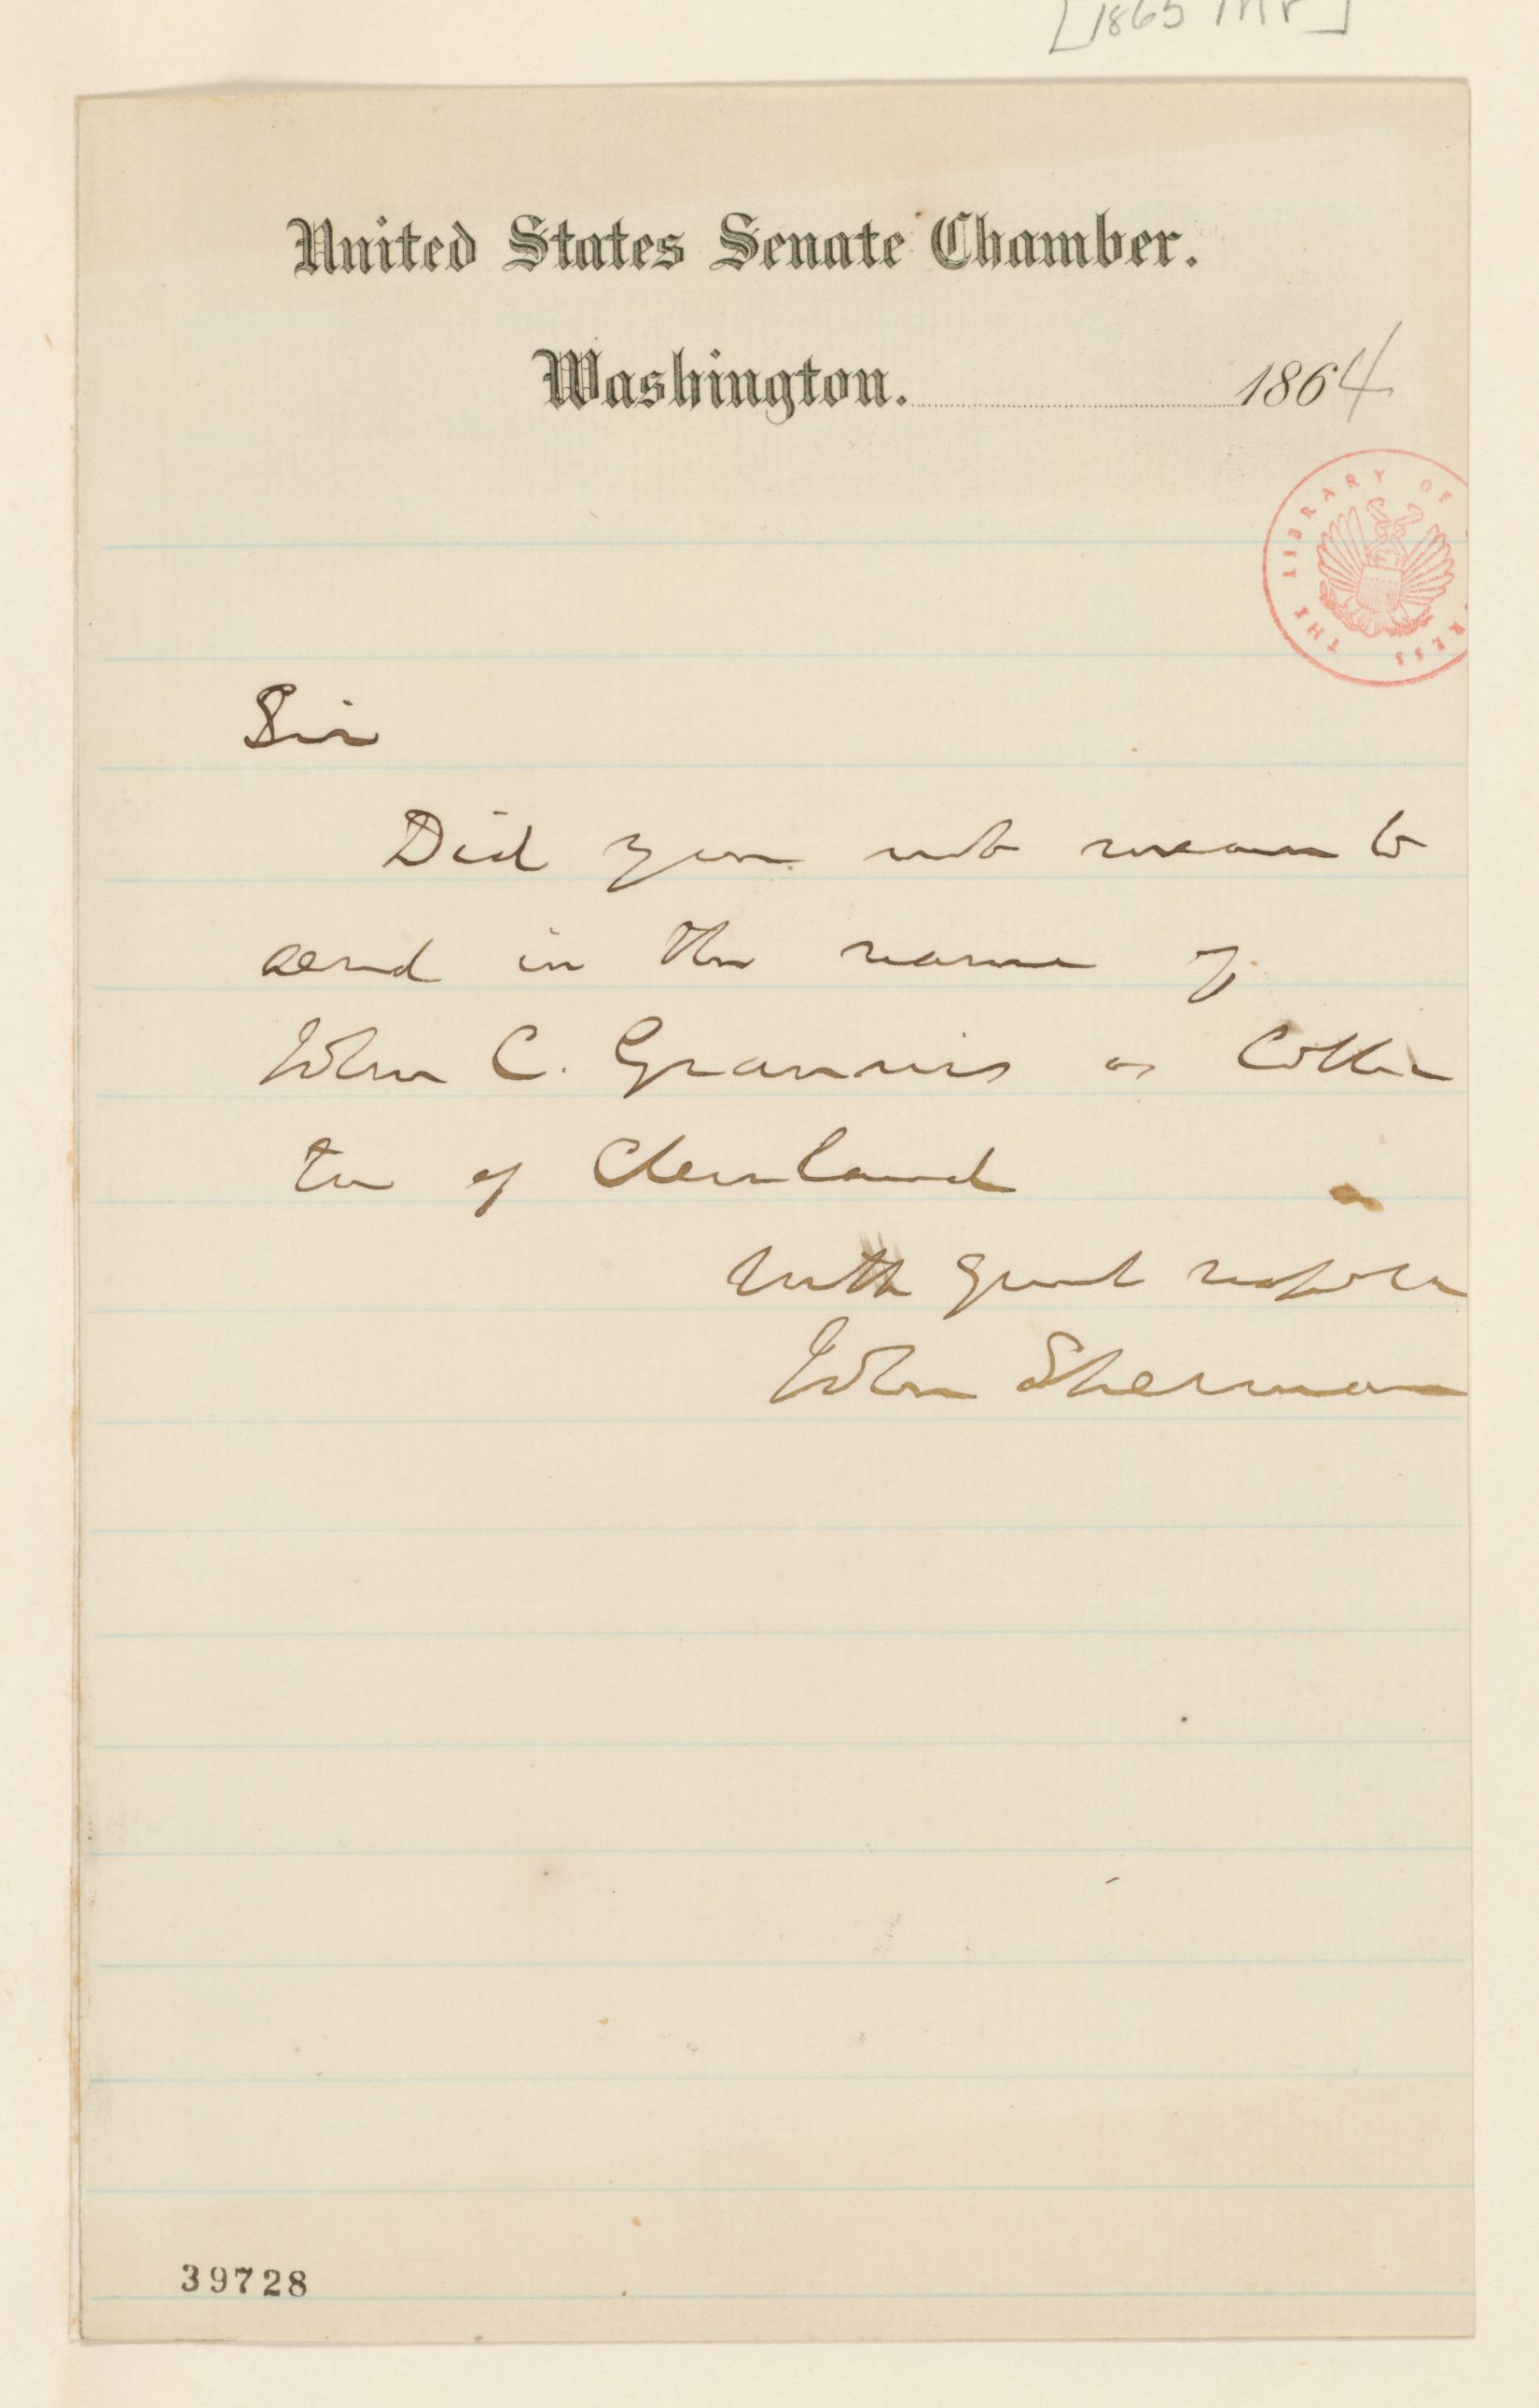 [1865 Mr]
United States Senate Chamber.
Washington. 1864
THE LIBRARY OF RESS
Sir
Did you not mean to
send in the name of
John C. Grannis as Collec
tor of Cleveland
With great respect
John Sherman
39728